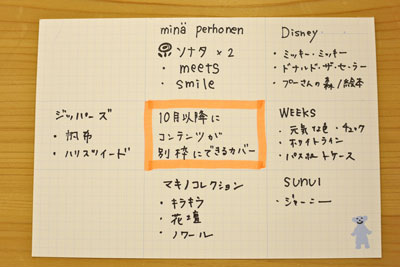 minä perhonen
ソナタ × 2
・meets
・smile
Disney
・ミッキー・ミッキー
・ドナルド・ザ・セーラー
・プーさんの森/絵本
ジッパーズ
・帆布
・ハリスツイード
10月以降に
コンテンツが
別枠にできるカバー
WEEKS
・元気な色・チェック
・ホワイトライン
・パスポートケース
マキノコレクション
・キラキラ
・花壇
・ノワール
sunui
・ジャーニー